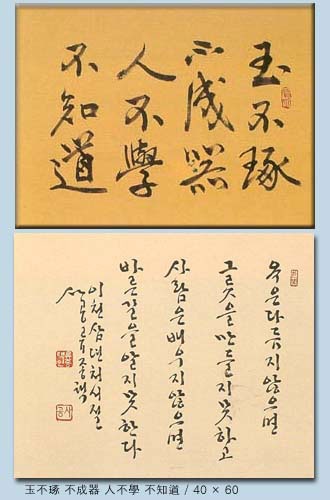 玉不琢
不成器
人不學
不知道
옥은 다듬지 않으면
그릇을 만들지 못하고
사람은 배우지 않으면
바른 길을 알지 못한다
이천삼년 처서절
玉不琢 不成器 人不學 不知道 / 40 × 60